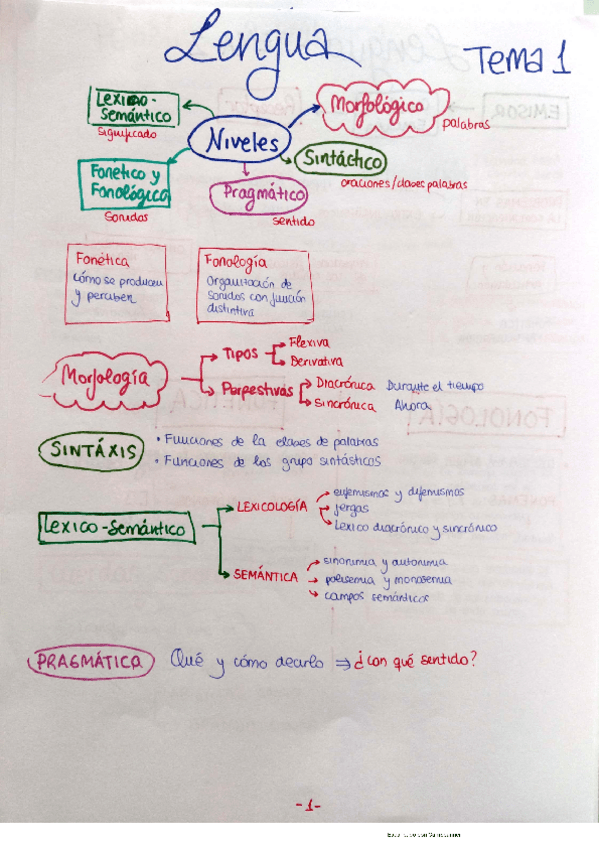 Lengua
Tema 1
Niveles
Lexico-
Semántico
significado
Morfológico
palabras
Fonético y
Fonológico
Sonidos
Pragmático
sentido
Sintáctico
oraciones/clases palabras
Fonética
cómo se producen
y perciben
Fonología
Organización de
sonidos con función
distintiva
Morfología
Tipos
Flexiva
Derivativa
Perpestivas
Diacrónica Durante el tiempo
Sincrónica Ahora
SINTÁXIS
• Funciones de la clases de palabras
• Funciones de los grupo sintásticos
Lexico-Semántico
LEXICOLOGÍA
eufemismos y difemismos
jergas
Lexico diacrónico y sincrónico
SEMÁNTICA
sinonimia y antonimia
polisemia y monosemia
campos semánticos
PRAGMÁTICA Qué y cómo decirlo ⇒ ¿con qué sentido?
-1-